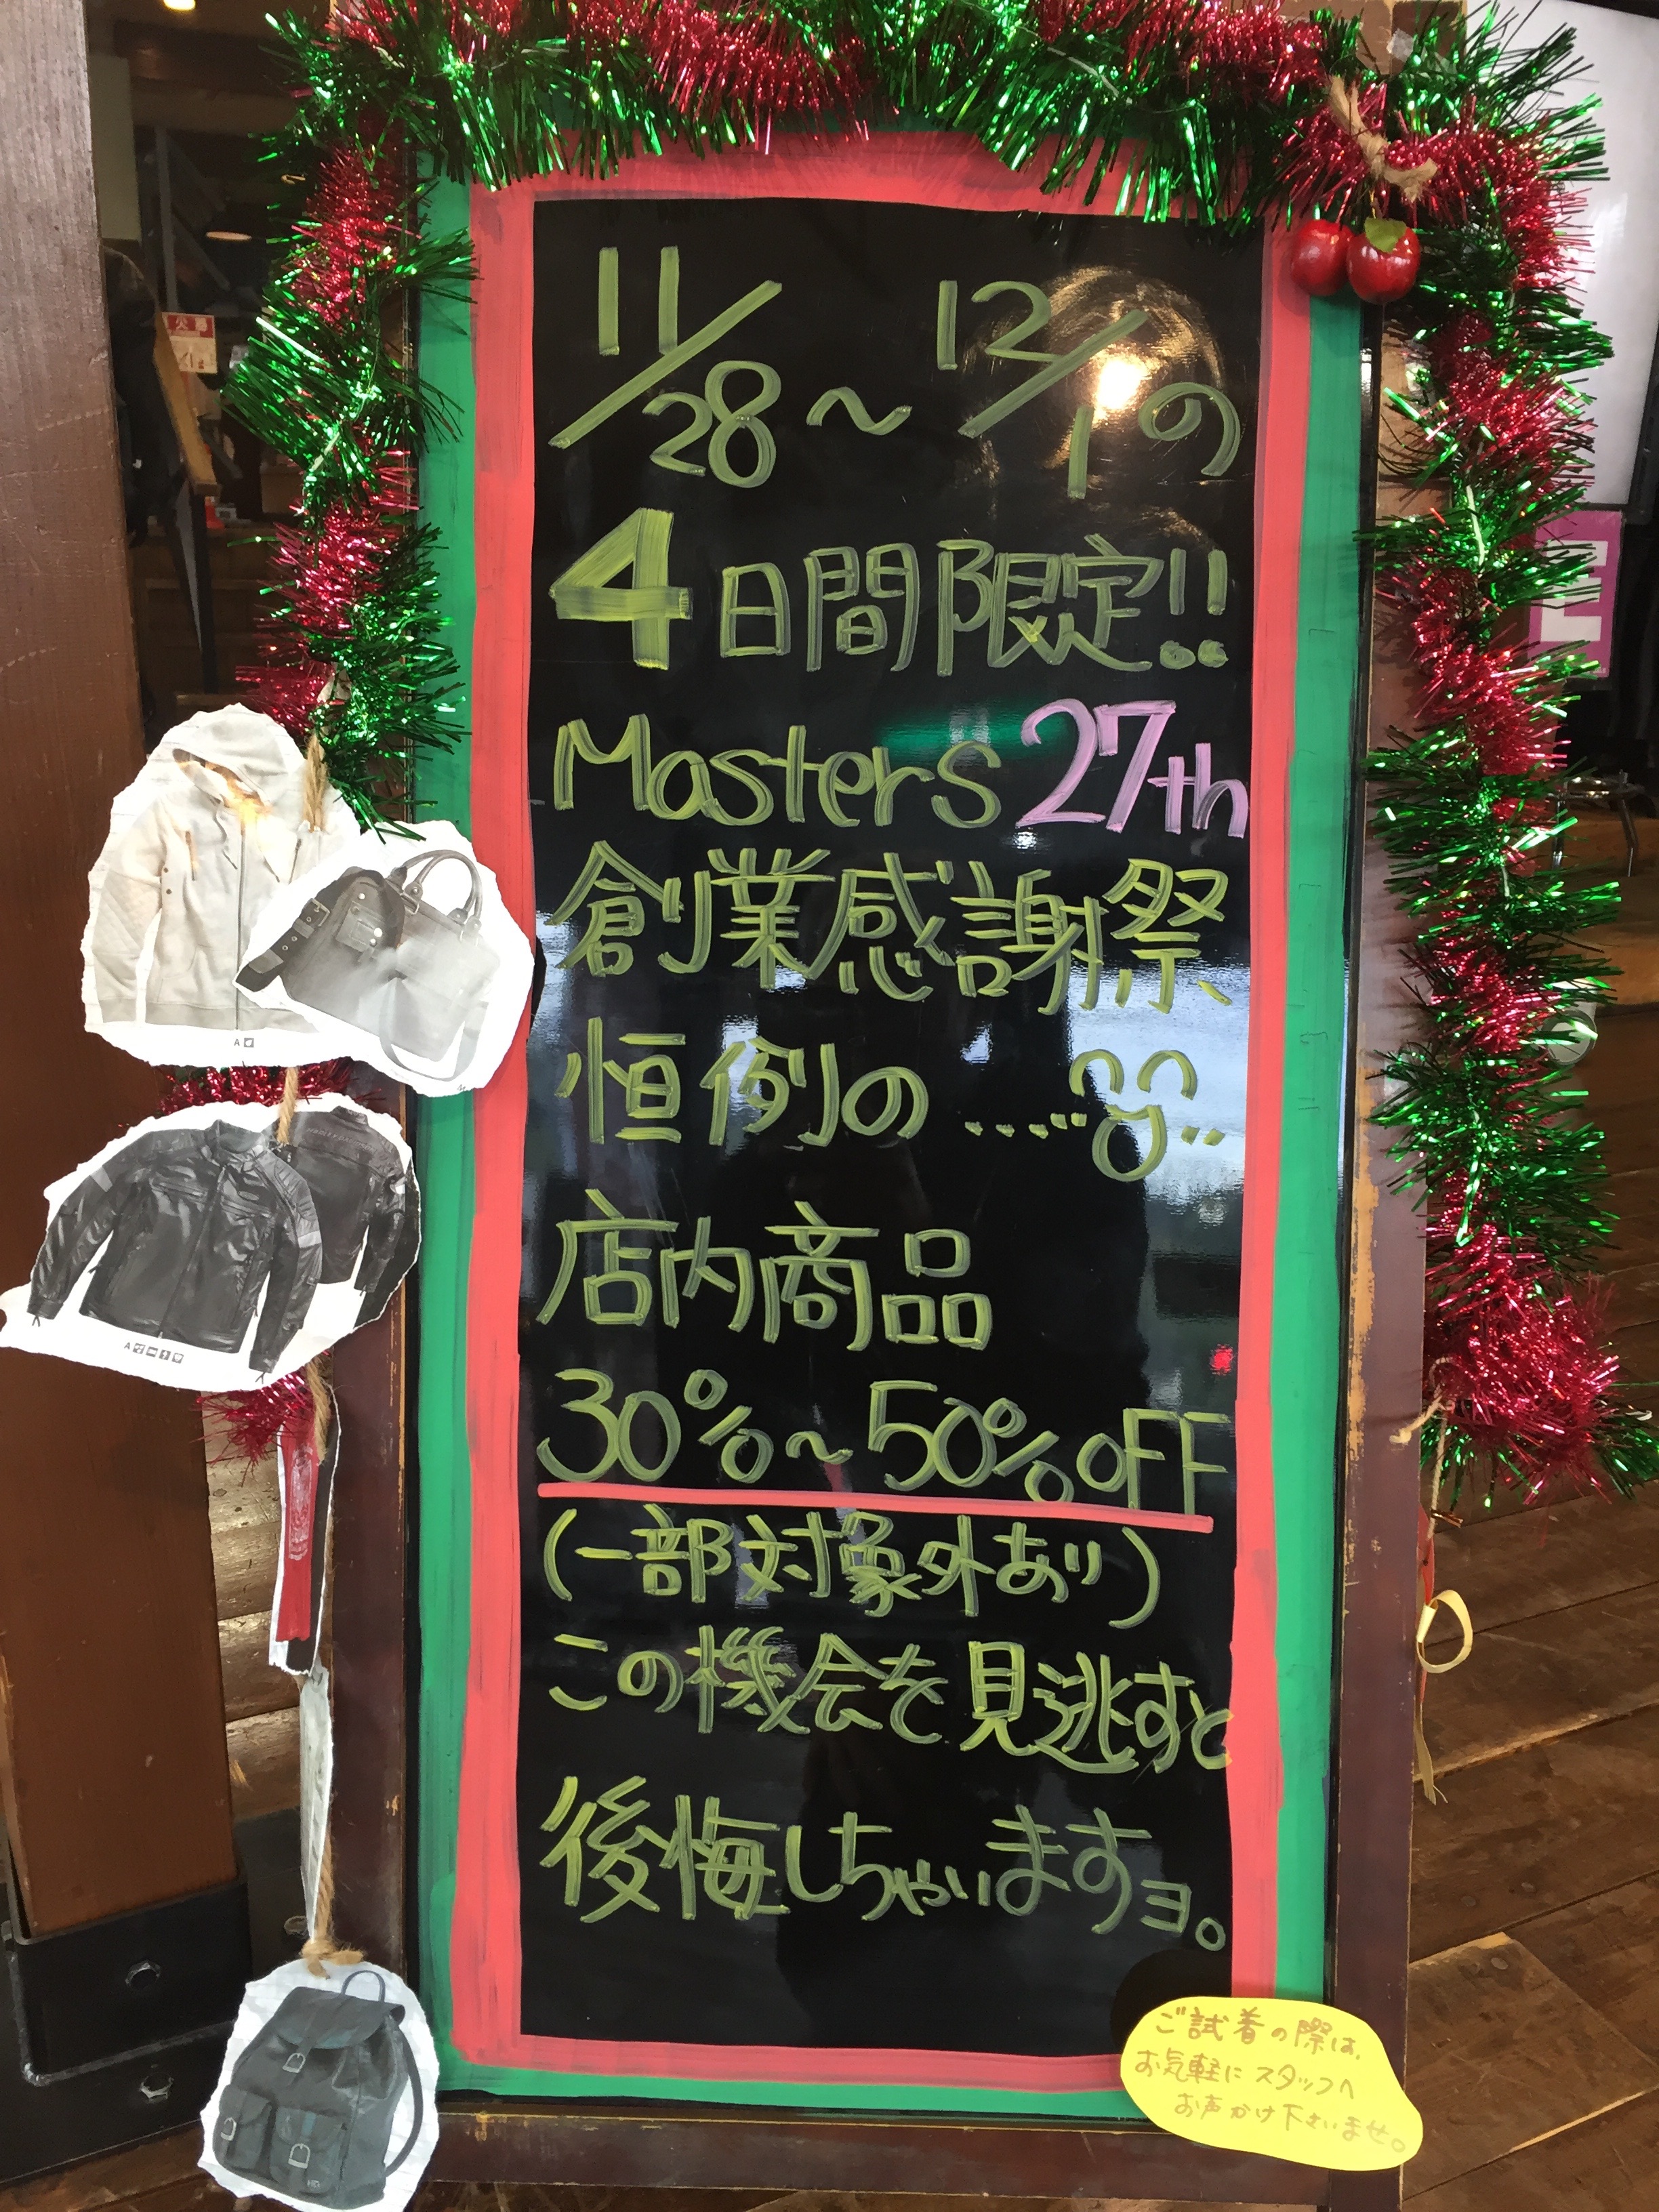 11/28～12/1の
4日間限定!!
Masters 27th
創業感謝祭、
恒例の……
店内商品
30%～50%OFF
(一部対象外あり)
この機会を見逃すと
後悔しちゃいますヨ。
ご試着の際は、
お気軽にスタッフへ
お声かけ下さいませ。